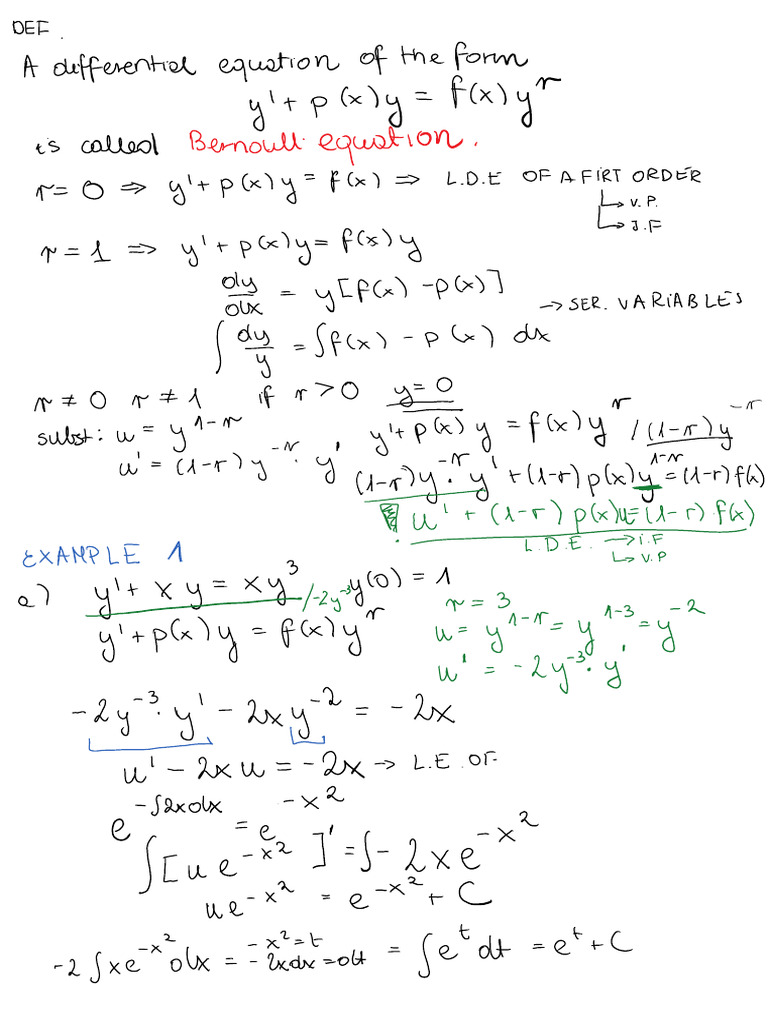 DEF.
A differential equation of the form
y' + p(x)y = f(x)y^r
is called Bernoulli equation.
r = 0 ⇒ y' + p(x)y = f(x) ⇒ L.D.E OF A FIRT ORDER
↳ V.P.
↳ I.F
r = 1 ⇒ y' + p(x)y = f(x)y
dy/dx = y[f(x) - p(x)]
→ SER. VARIABLES
∫ dy/y = ∫f(x) - p(x) dx
r ≠ 0 r ≠ 1 if r > 0 y = 0
subst: u = y^(1-r) y' + p(x)y = f(x)y^r / (1-r)y^(-r)
u' = (1-r)y^(-r) · y'
1-r
(1-r)y^(-r) · y' + (1-r)p(x)y = (1-r)f(x)
! u' + (1-r)p(x)u = (1-r) · f(x)
L.D.E. → I.F
↳ V.P
EXAMPLE 1
a) y' + xy = xy^3 /-2y^(-3) y(0) = 1
r = 3
y' + p(x)y = f(x)y^r
u = y^(1-r) = y^(1-3) = y^(-2)
u' = -2y^(-3) · y'
-2y^(-3) · y' - 2xy^(-2) = -2x
u' - 2xu = -2x → L.E. OF
e^(-∫2xdx) = e^(-x^2)
∫[ue^(-x^2)]' = ∫-2xe^(-x^2)
ue^(-x^2) = e^(-x^2) + C
-2∫xe^(-x^2)dx = -x^2 = t -2xdx = dt = ∫e^t dt = e^t + C